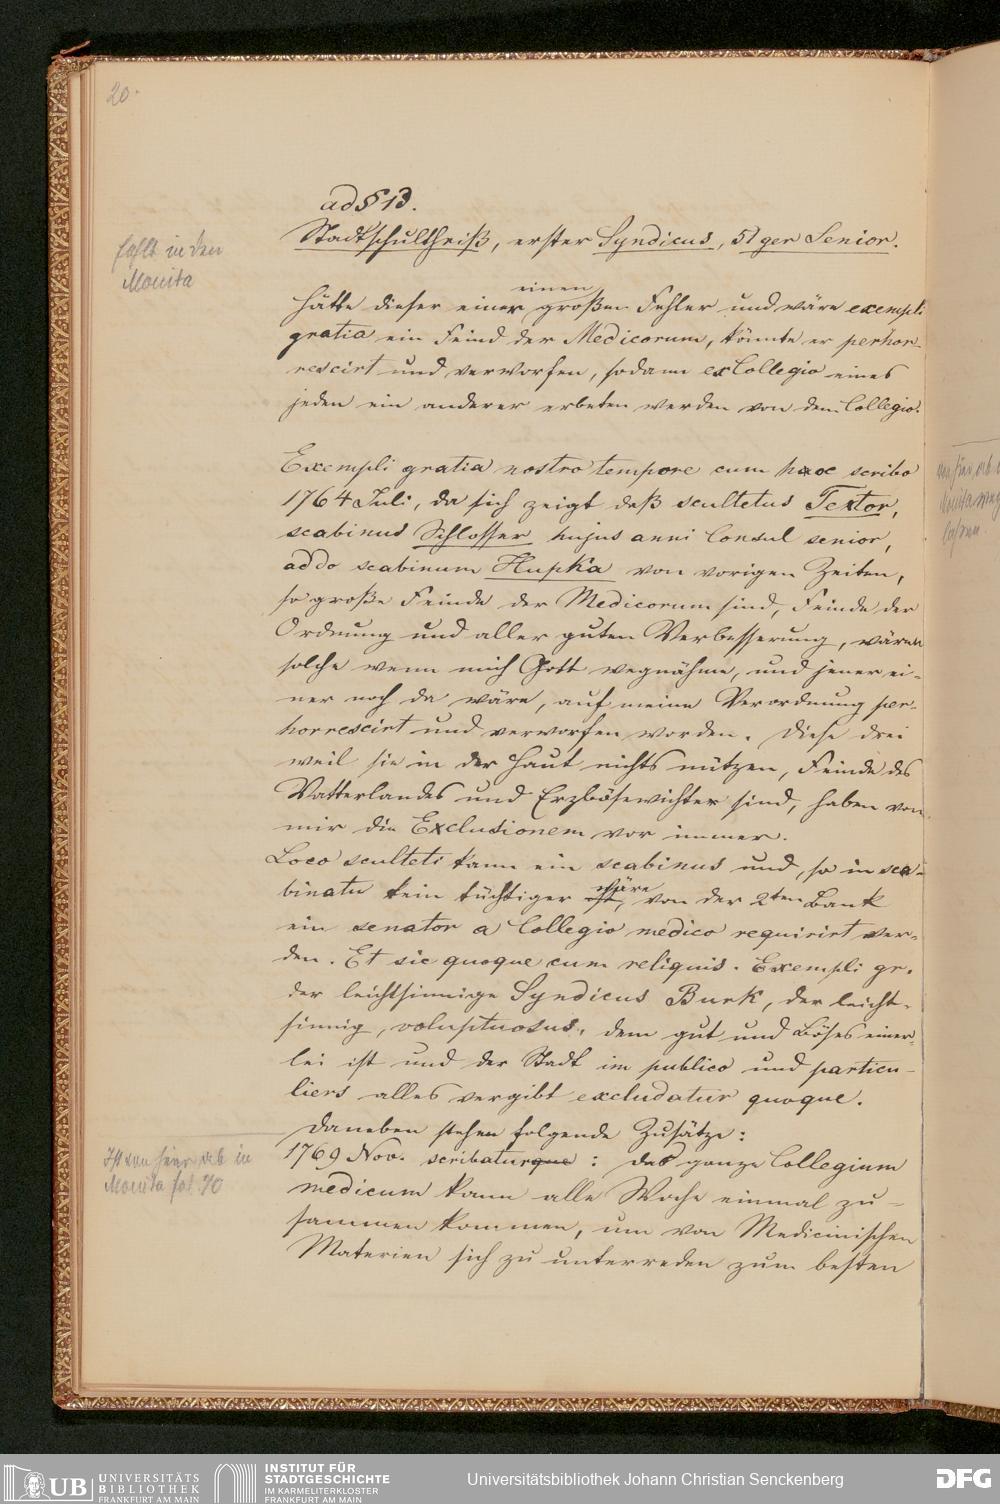 20.
ad § 13.
Stadtschultheiß, erster Syndicus, 51ger Senior.
fehlt in den
Monita
einen
hätte dieser einer großen Fehler und wäre exempli
gratia ein Feind der Medicorum, könnte er perhor-
rescirt und verworfen, sodann ex Collegio eines
jeden ein anderer erbeten werden von dem Collegio.
Exempli gratia nostro tempore cum haoc scribo
1764 Juli, da sich zeigt daß scultetus Textor,
scabinus Schlosser hujus anni Consul senior,
addo scabinum Hupka von vorigen Zeiten,
so große Feinde der Medicorum sind, Feinde der
Ordnung und aller guten Verbesserung, wären
solche wenn mich Gott wegnähme, und jener ei-
ner noch da wäre, auf meine Verordnung per-
horrescirt und verworfen worden. Diese drei
weil sie in der Haut nichts nützen, Feinde des
Vatterlandes und Erzbösewichter sind, haben von
mir die Exclusionem vor immer.
Loco sculteti kann ein scabinus und, so in sca-
binatu kein tüchtiger ist, wäre von der 2ten Bank
ein senator a Collegio medico requirirt wer-
den. Et sic quoque cum reliquis. Exempli gr.
der leichtsinnige Syndicus Burk, der leicht-
sinnig, voluptuosus, dem gut und Böses einer-
lei ist und der Stadt im publico und particu-
liers alles vergibt excludatur quoque.
Daneben stehen folgende Zusätze:
1769 Nov. scribaturque : das ganze Collegium
medicum kann alle Woche einmal zu-
sammen kommen, um von Medicinischen
Materien sich zu unterreden zum besten
Ist von hier ab in
Monita fol. 70
von hier ab
Monita weg
UB UNIVERSITÄTS
BIBLIOTHEK
FRANKFURT AM MAIN
INSTITUT FÜR
STADTGESCHICHTE
IM KARMELITERKLOSTER
FRANKFURT AM MAIN
Universitätsbibliothek Johann Christian Senckenberg
DFG